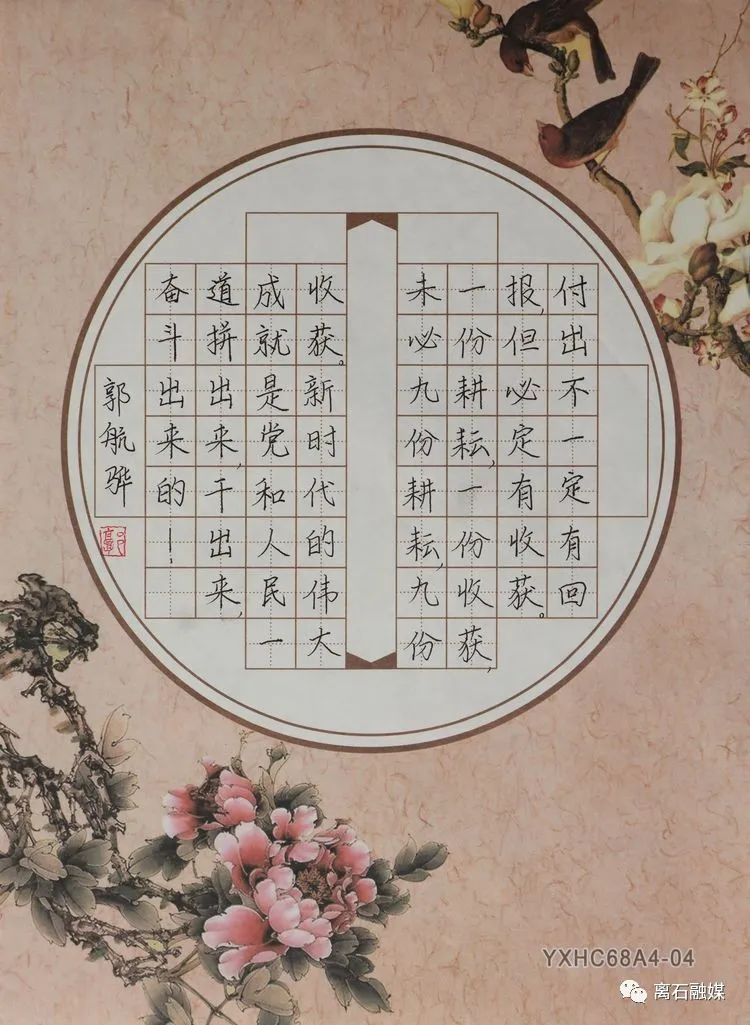 付出不一定有回
报,但必定有收获。
一份耕耘,一份收获,
未必九份耕耘,九份
收获。新时代的伟大
成就是党和人民一
道拼出来,干出来,
奋斗出来的!
郭航骅
YXHC68A4-04
离石融媒